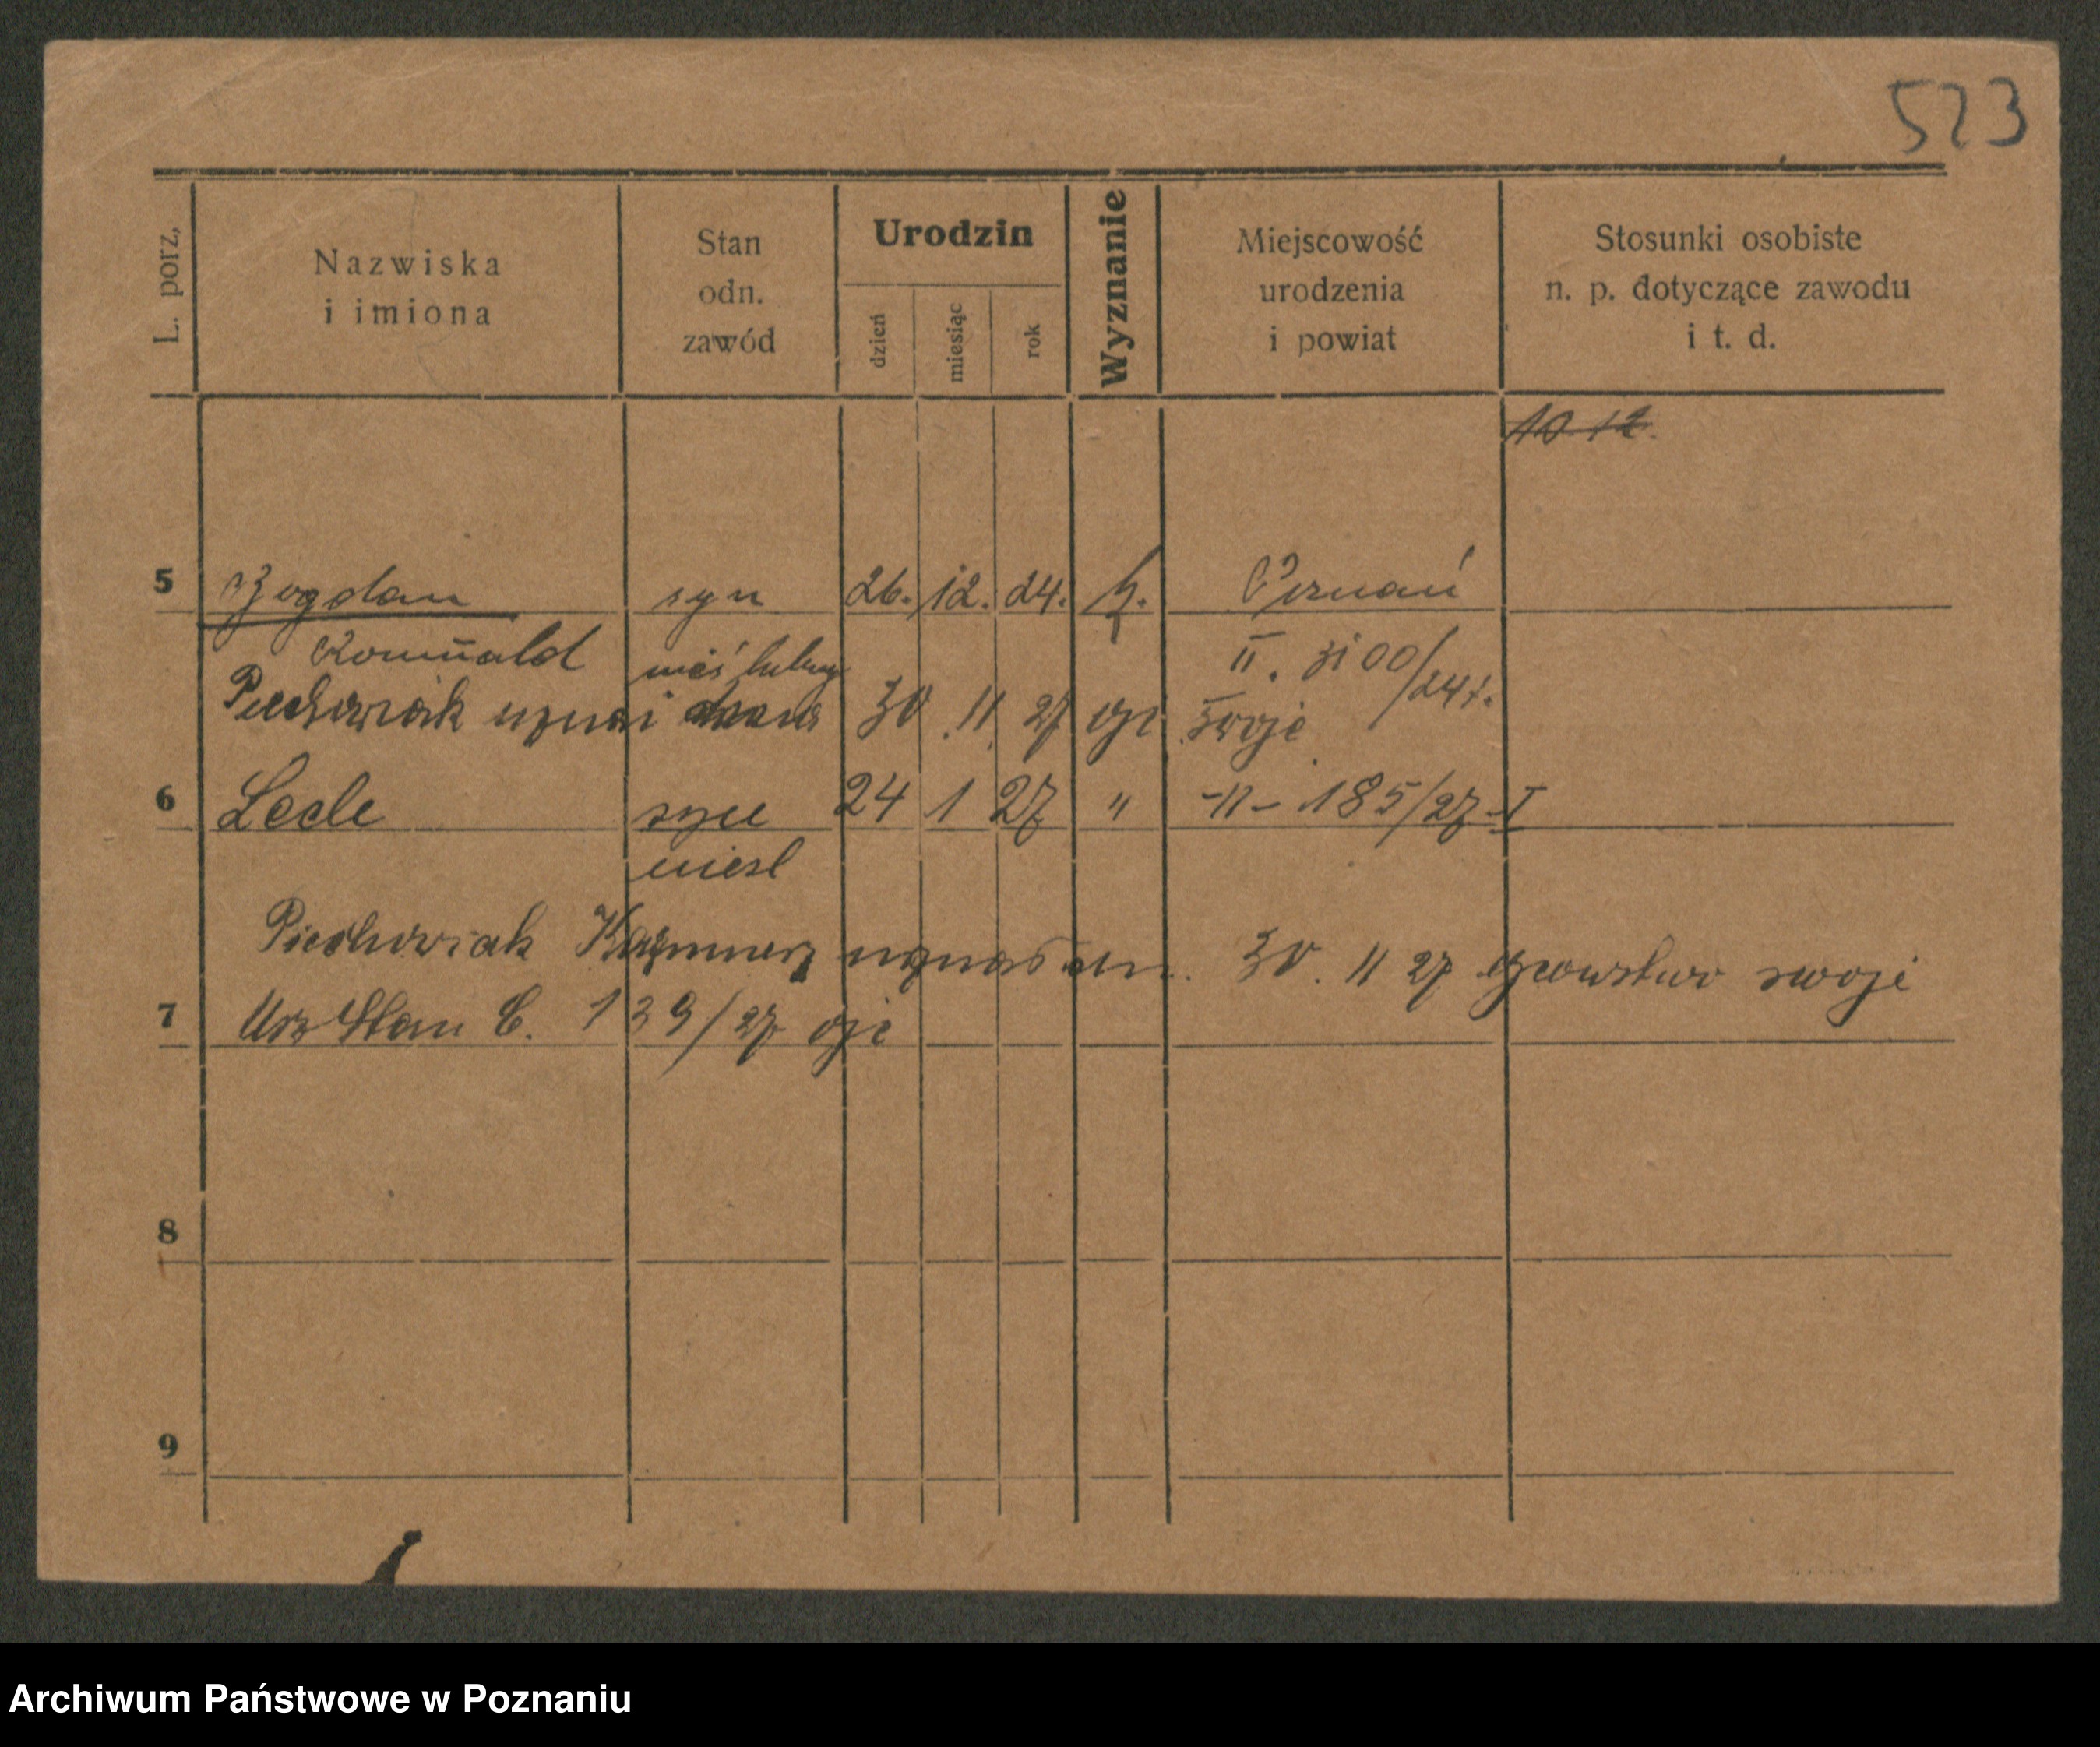 523
L. porz,
Nazwiska
i imiona
Stan
odn.
zawód
Urodzin
dzień
miesiąc
rok
Wyznanie
Miejscowość
urodzenia
i powiat
Stosunki osobiste
n. p. dotyczące zawodu
i t. d.
10 12.
5 Bogdan syn 26. 12. 24. k. Poznań
Romuald nieślubny II. 3100/24 r.
Piechowiak uznał 30. 11. 27 ojc swoje
6 Lech syn 24 1 27 " -"- 185/27 I
niesl
Piechowiak Kazimierz uznał dn. 30. 11 27 ojcowstwo swoje
7 Urz Stan C. 139/27 ojc
8
9
Archiwum Państwowe w Poznaniu